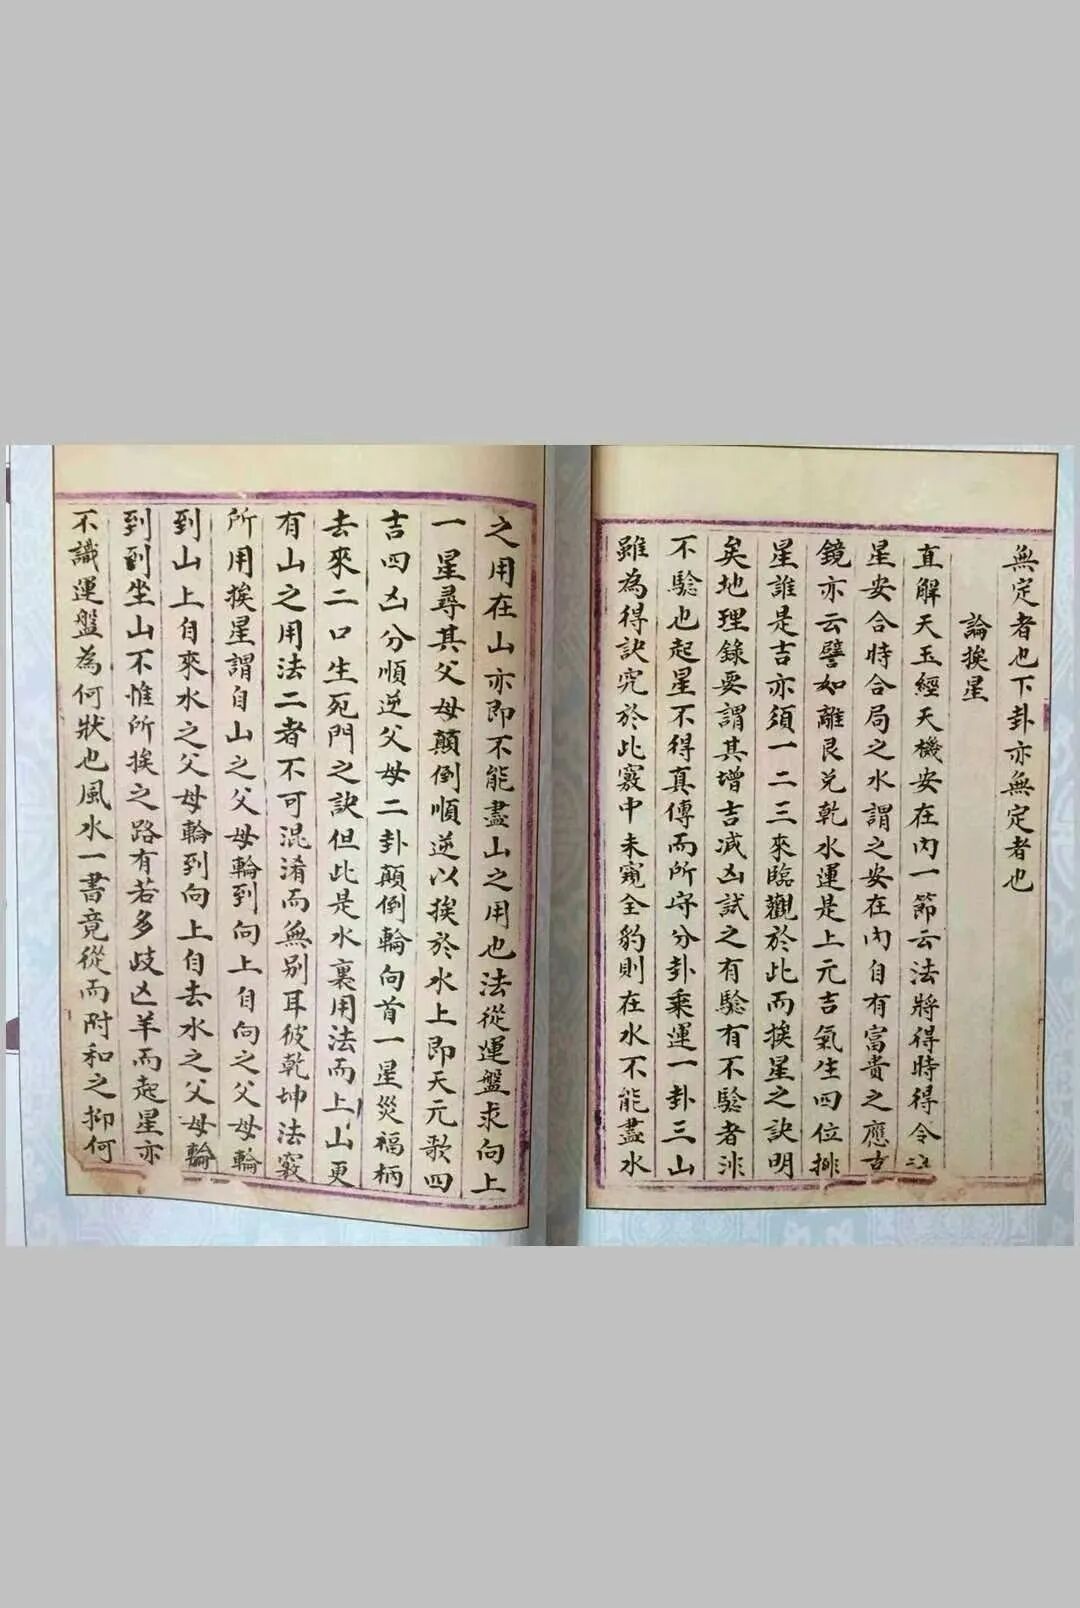 無定者也下卦亦無定者也
論挨星
直解天玉經天機安在內一節云法將得時得令之
星安合時合局之水謂之安在內自有富貴之應古
鏡亦云譬如離艮兌乾水運是上元吉氣生四位排
星誰是吉亦須一二三來臨觀於此而挨星之訣明
矣地理錄要謂其增吉减凶試之有驗有不驗者非
不驗也起星不得真傳而所守分卦乘運一卦三山
雖為得訣究於此竅中未窺全豹則在水不能盡水
之用在山亦即不能盡山之用也法從運盤求向上
一星尋其父母顛倒順逆以挨於水上即天元歌四
吉四凶分順逆父母二卦顛倒輪向首一星災福柄
去來二口生死門之訣但此是水裏用法而上山更
有山之用法二者不可混淆而無别耳彼乾坤法竅
所用挨星謂自山之父母輪到向上自向之父母輪
到山上自來水之父母輪到向上自去水之父母輪
到到坐山不惟所挨之路有若多歧亡羊而起星亦
不識運盤為何狀也風水一書竟從而附和之抑何